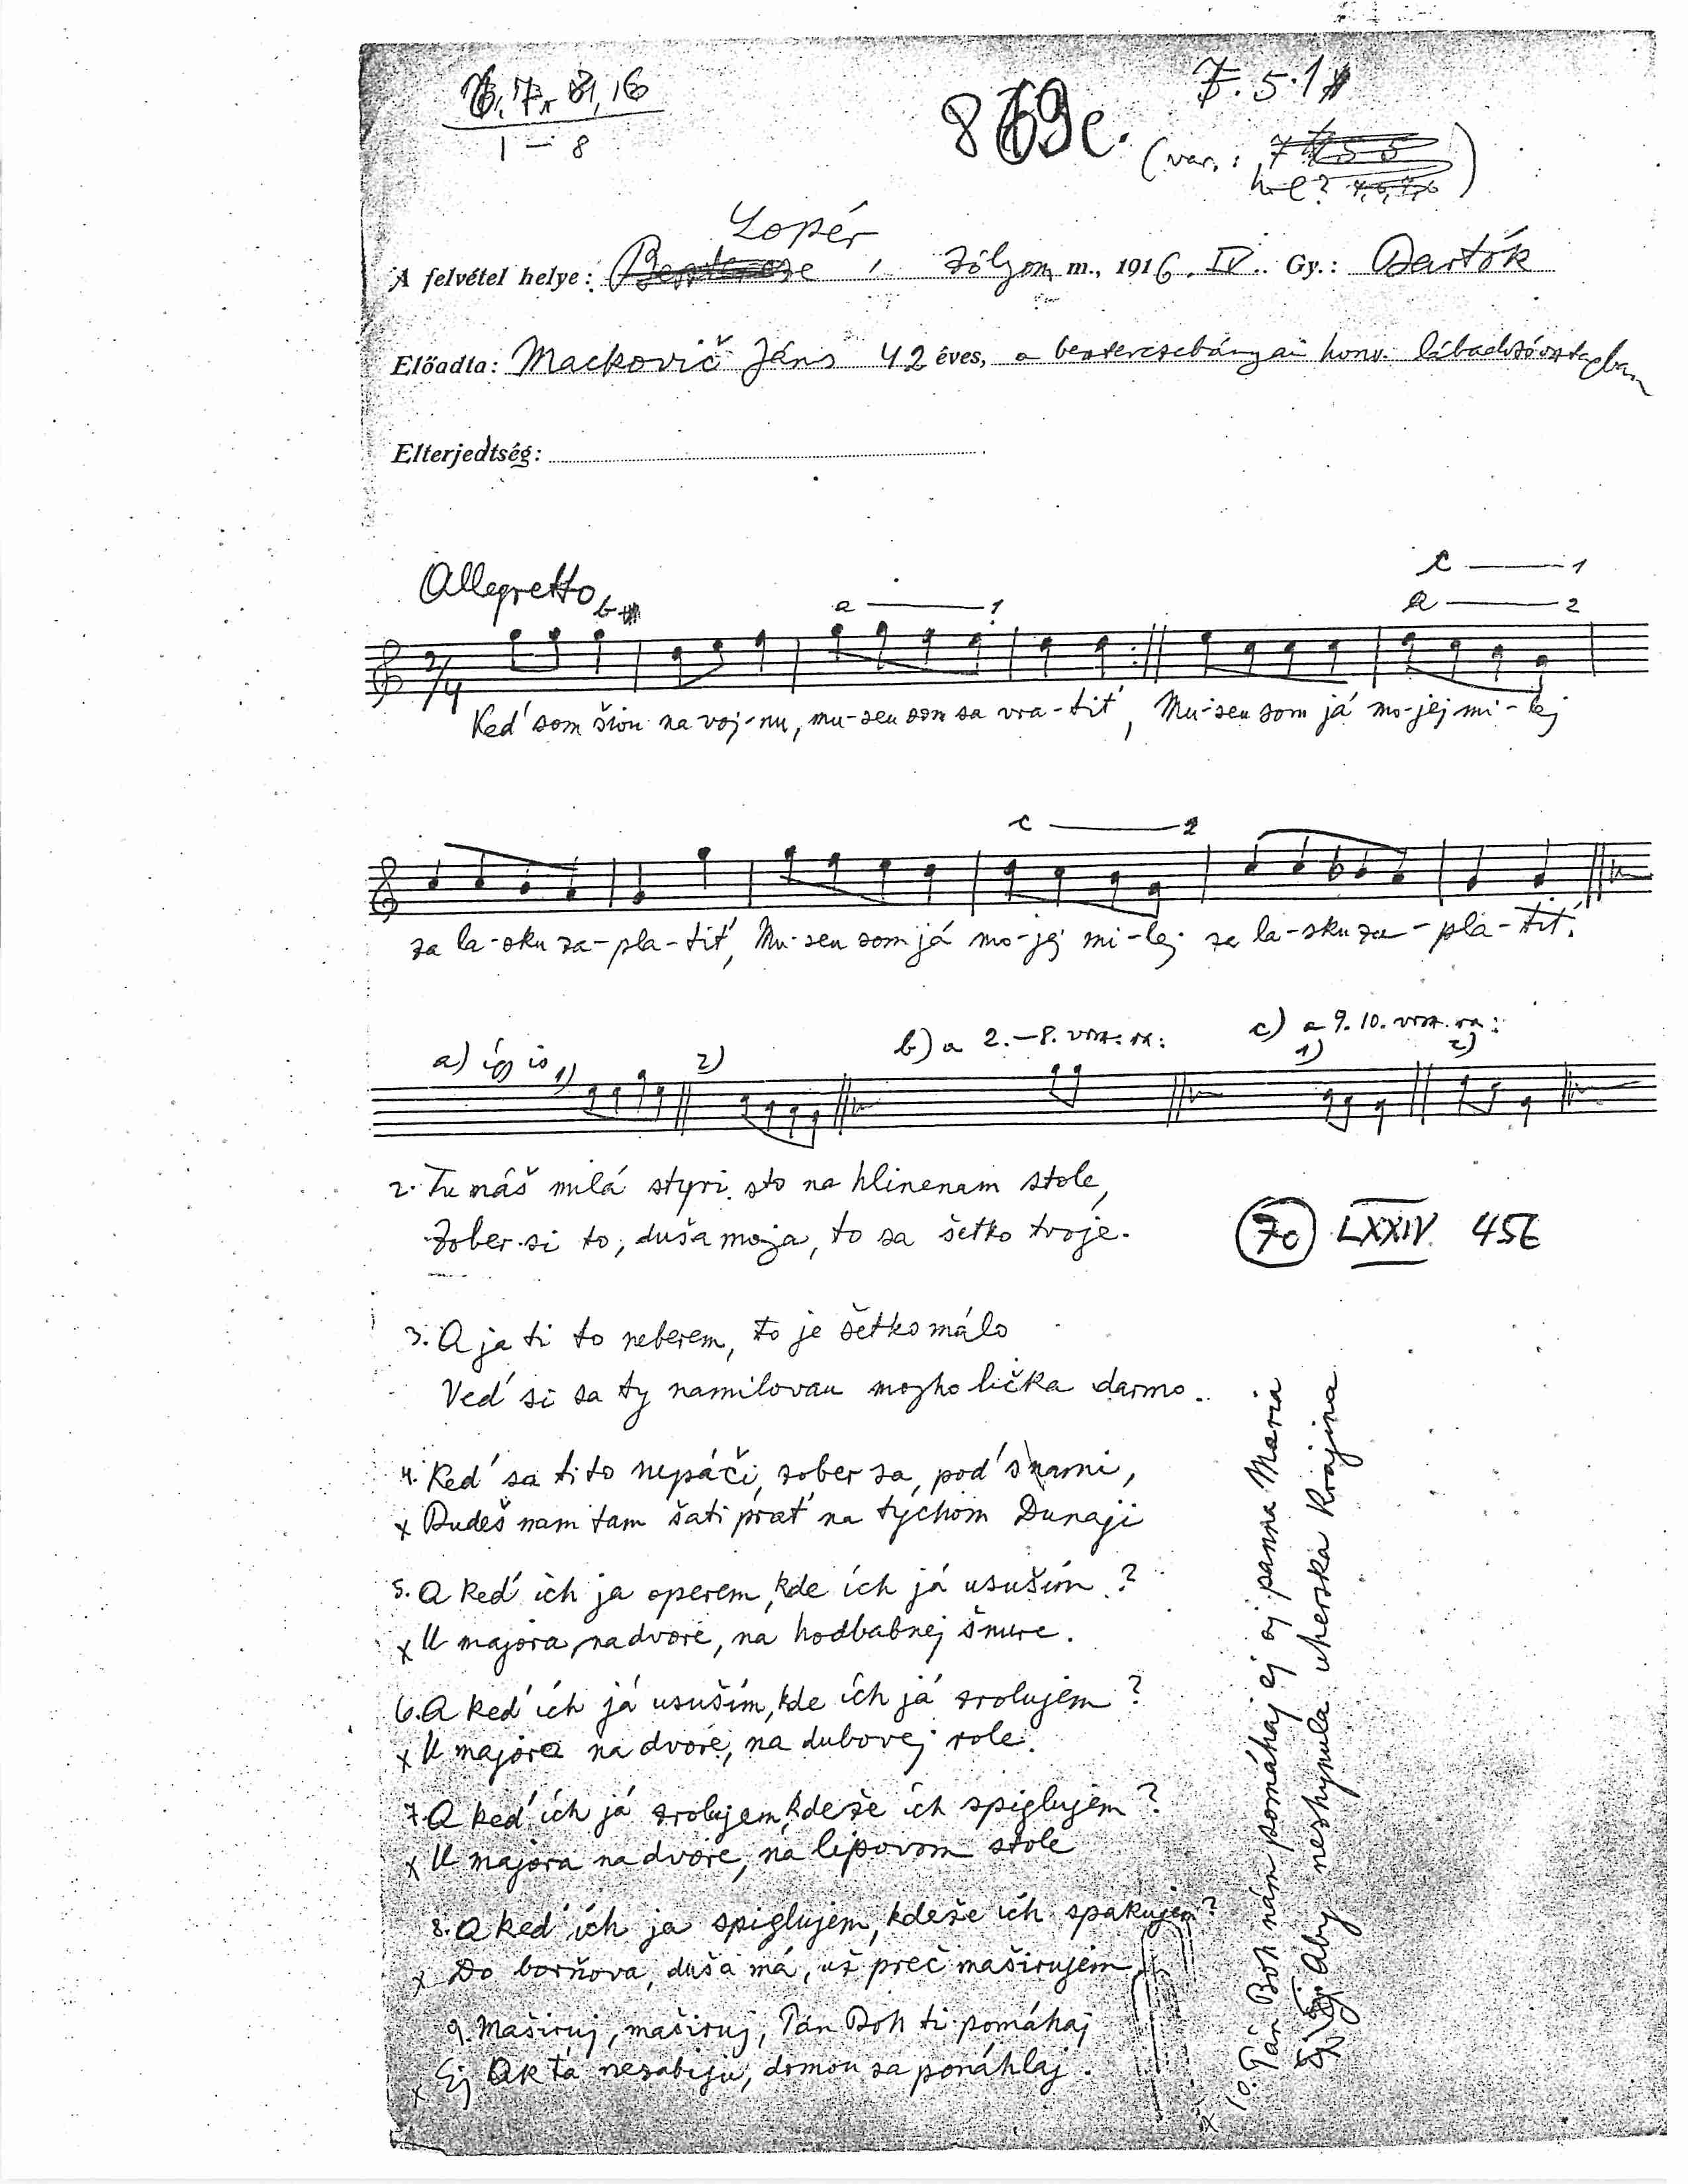 1 – 8
869c.
(var.:
Lopér
A felvétel helye: , Zólyom m., 1916. IV. Gy.: Bartók
Előadta: Mackovič Jáns 42 éves, a besztercebányai honv. lábadozóosztagban
Elterjedtség:
Allegretto b
c — 1
a — 1 a — 2
2/4
Keď som šiou na voj-nu, mu-seu som sa vra-tiť, Mu-seu som já mo-jej mi-lej
c — 2
za la-sku za-pla-tiť, Mu-seu som já mo-jej mi-lej za la-sku za-pla-tiť.
a) így is 1) 2) b) a 2.–8. vrsz.ra: c) a 9. 10. vrsz.ra: 1) 2)
2. Tu máš milá styri sto na hlinenam stole,
Zober si to, duša moja, to sa šetko tvoje.
70 LXXIV 45
3. A ja ti to neberem, to je šetko málo
Veď si sa ty namilovau mojho lička darmo.
4. Keď sa ti to nepáči, zober sa, poď s nami,
x Budeš nam tam šati prať na týchom Dunaji
5. A keď ich ja operem, kde ích já usuším?
x U majora, na dvore, na hodbabnej šnure.
6. A keď ích já usuším, kde ích já zrolujem?
x U majora na dvore, na dubovej role.
7. A keď ích já zrolujem, kdeže ích spiglujem?
x U majora na dvore, na lipovom stole
8. A keď ích ja spiglujem, kdeže ích spakujem?
x Do borňova, duša má, už preč maširujem
9. Maširuj, maširuj, Pán Boh ti pomáhaj
x Ej Ak ťa nezabijú, domou sa ponáhlaj.
10. Pán Boh nám pomáhaj ej oj panna Maria
x Ej Aby neshynula uherska Krajina